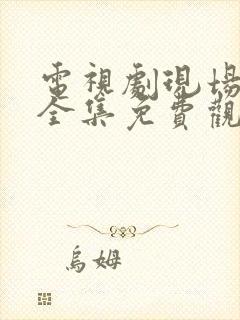 電視劇現場
全集免費觀
烏姆